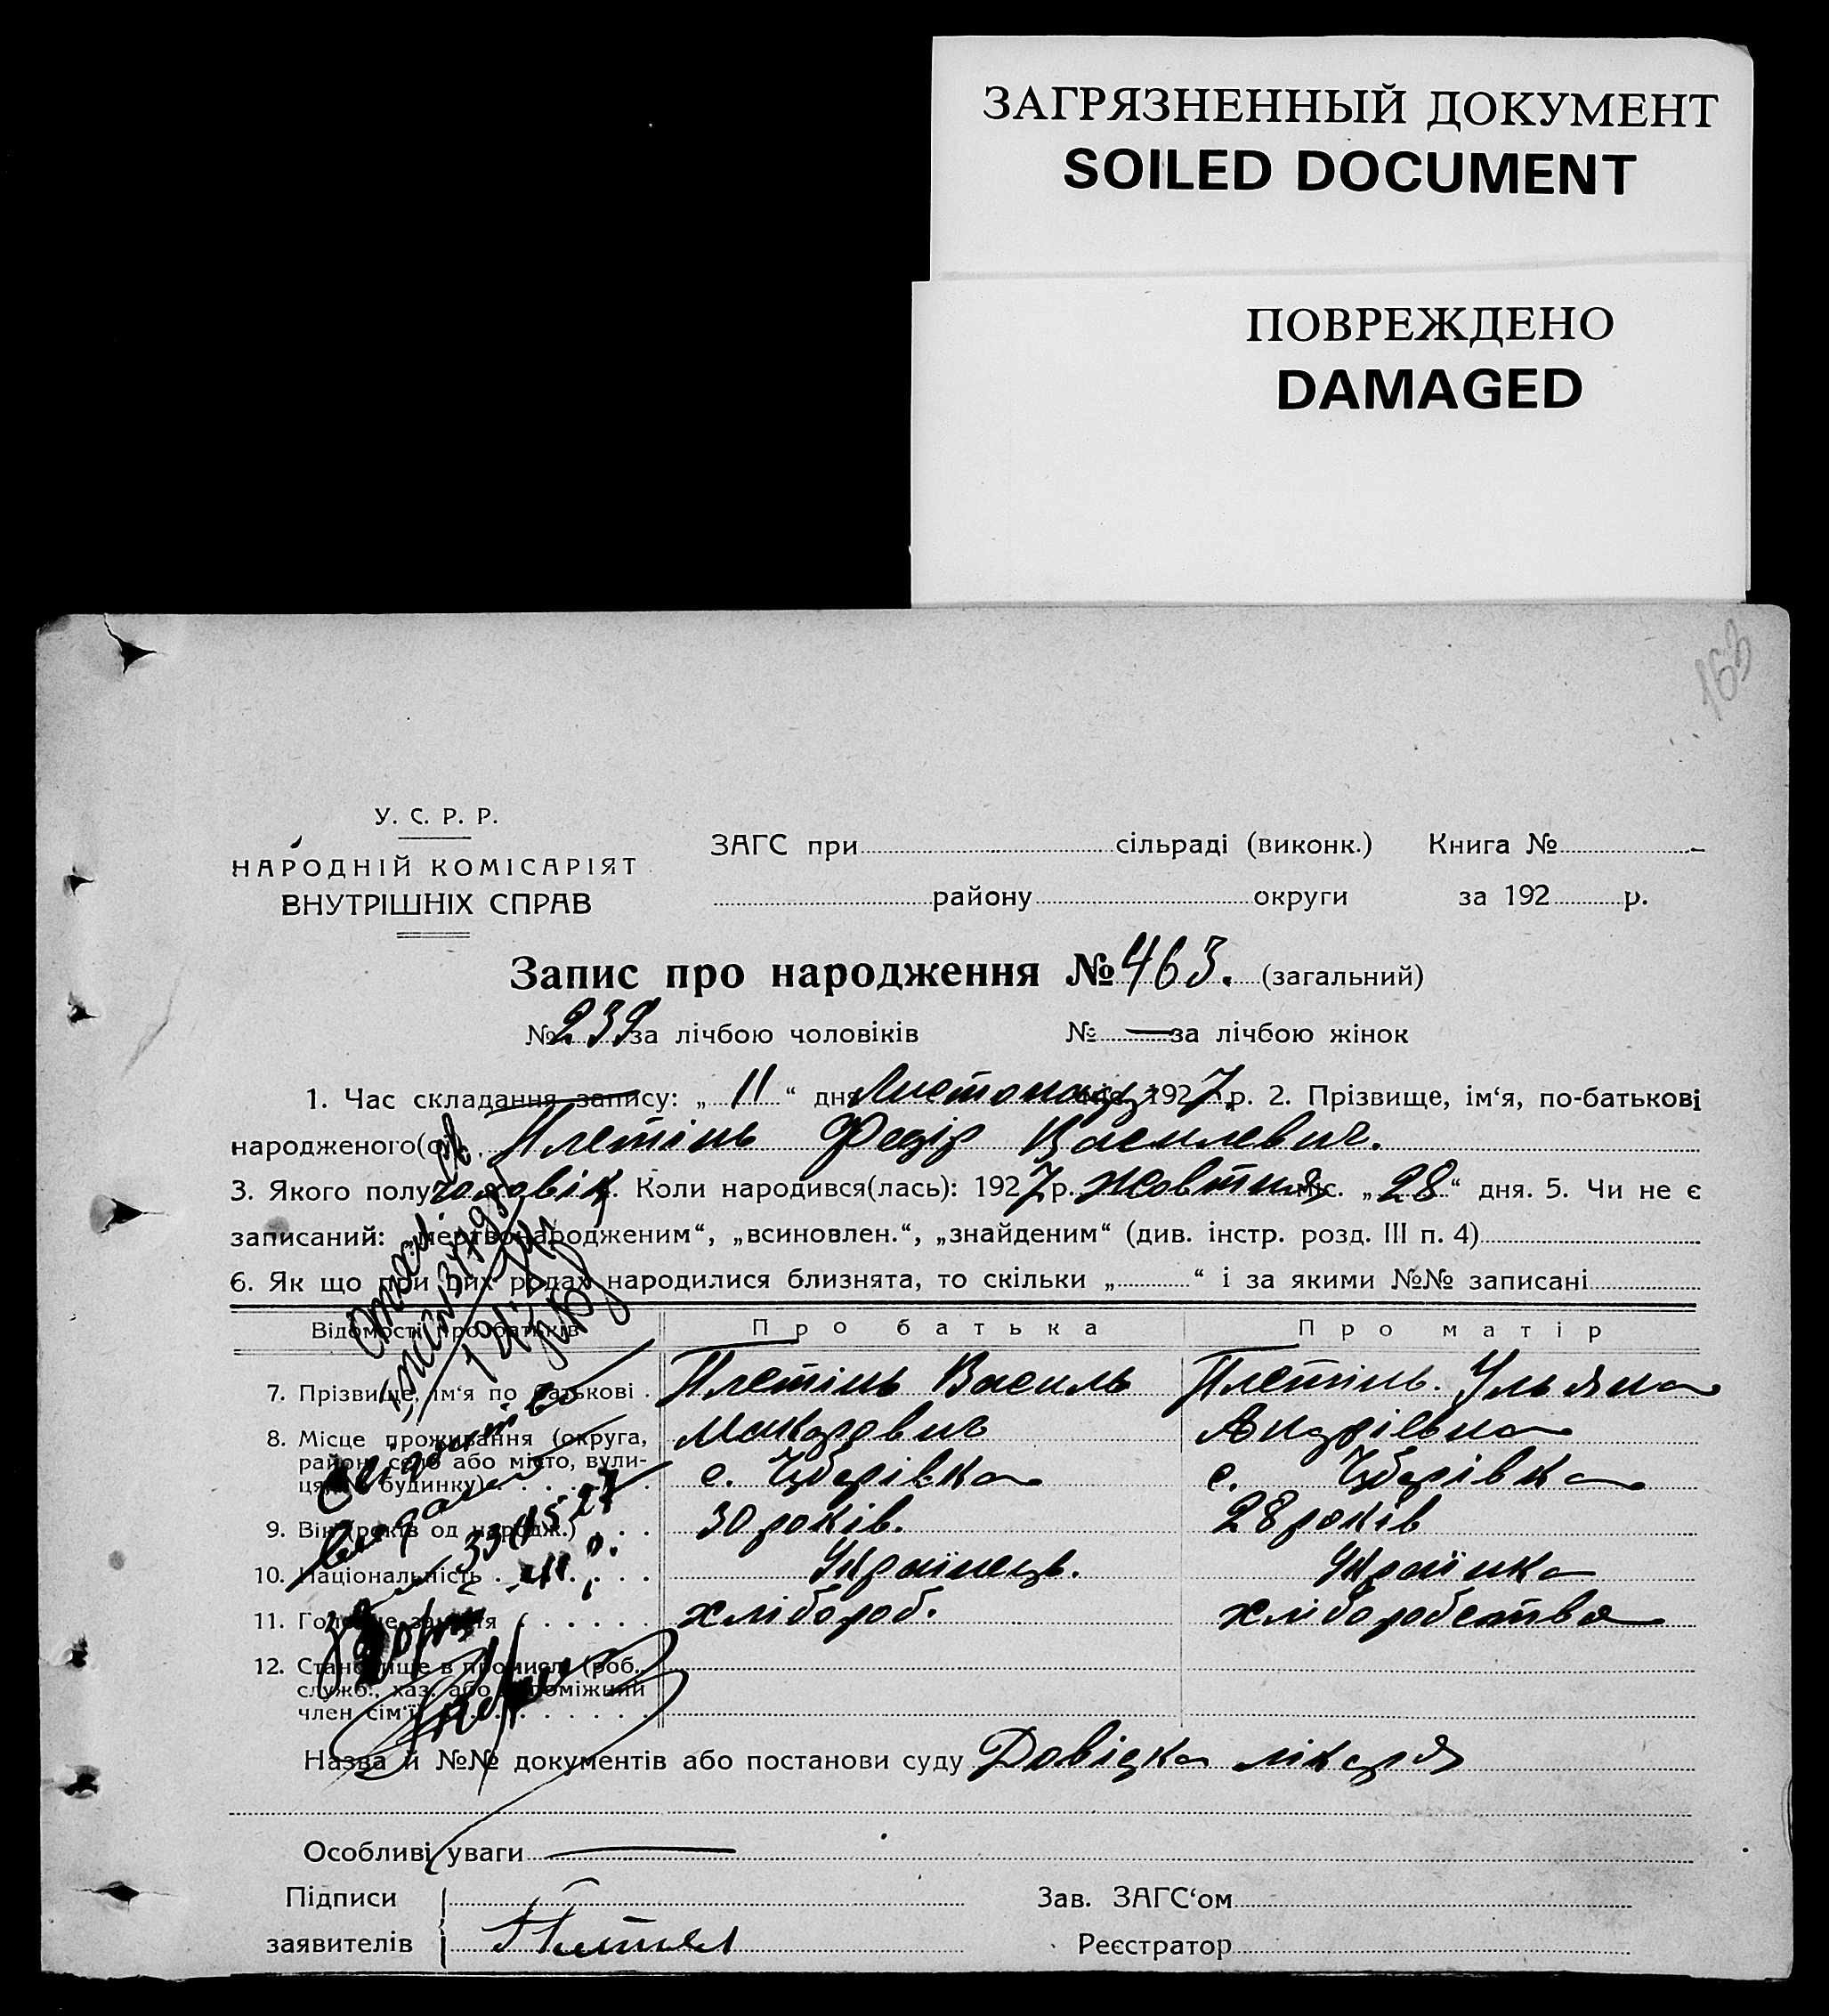 ЗАГРЯЗНЕННЫЙ ДОКУМЕНТ
SOILED DOCUMENT
ПОВРЕЖДЕНО
DAMAGED
У. С. Р. Р.
НАРОДНІЙ КОМІСАРІЯТ
ВНУТРІШНІХ СПРАВ
ЗАГС при сільраді (виконк.) Книга №
району округи за 192 р.
Запис про народження № 463. (загальний)
№ 239 за лічбою чоловіків № — за лічбою жінок
1. Час складання запису: „ 11 “ дня Листопада міс. 1927 р. 2. Прізвище, ім‘я, по-батькові
народженого(ої) Плетінь Федір Василевич.
3. Якого полу чоловік. Коли народився(лась): 1927 р. Жовтня міс. „ 28 “ дня. 5. Чи не є
записаний: „мертвонародженим“, „всиновлен.“, „знайденим“ (див. інстр. розд. III п. 4)
6. Як що при цих родах народилися близнята, то скільки „ “ і за якими №№ записані
Відомості про батьків Про батька Про матір
7. Прізвище, ім‘я по батькові . Плетінь Василь Плетінь Ульяна
8. Місце проживання (округа, Макарович Андріевна
район, село або місто, вули-
ця, № будинку) с. с.
9. Вік (років од народж.) 30 років. 28 років
10. Національність Украінець. Украінка
11. Головне заняття хлібороб. хліборобства
12. Становище в промислі (роб.,
служб., хаз. або допоміжний
член сім‘ї)
Назва й №№ документів або постанови суду Довідка лікаря
Особливі уваги
Підписи Зав. ЗАГС‘ом
заявителів Реєстратор